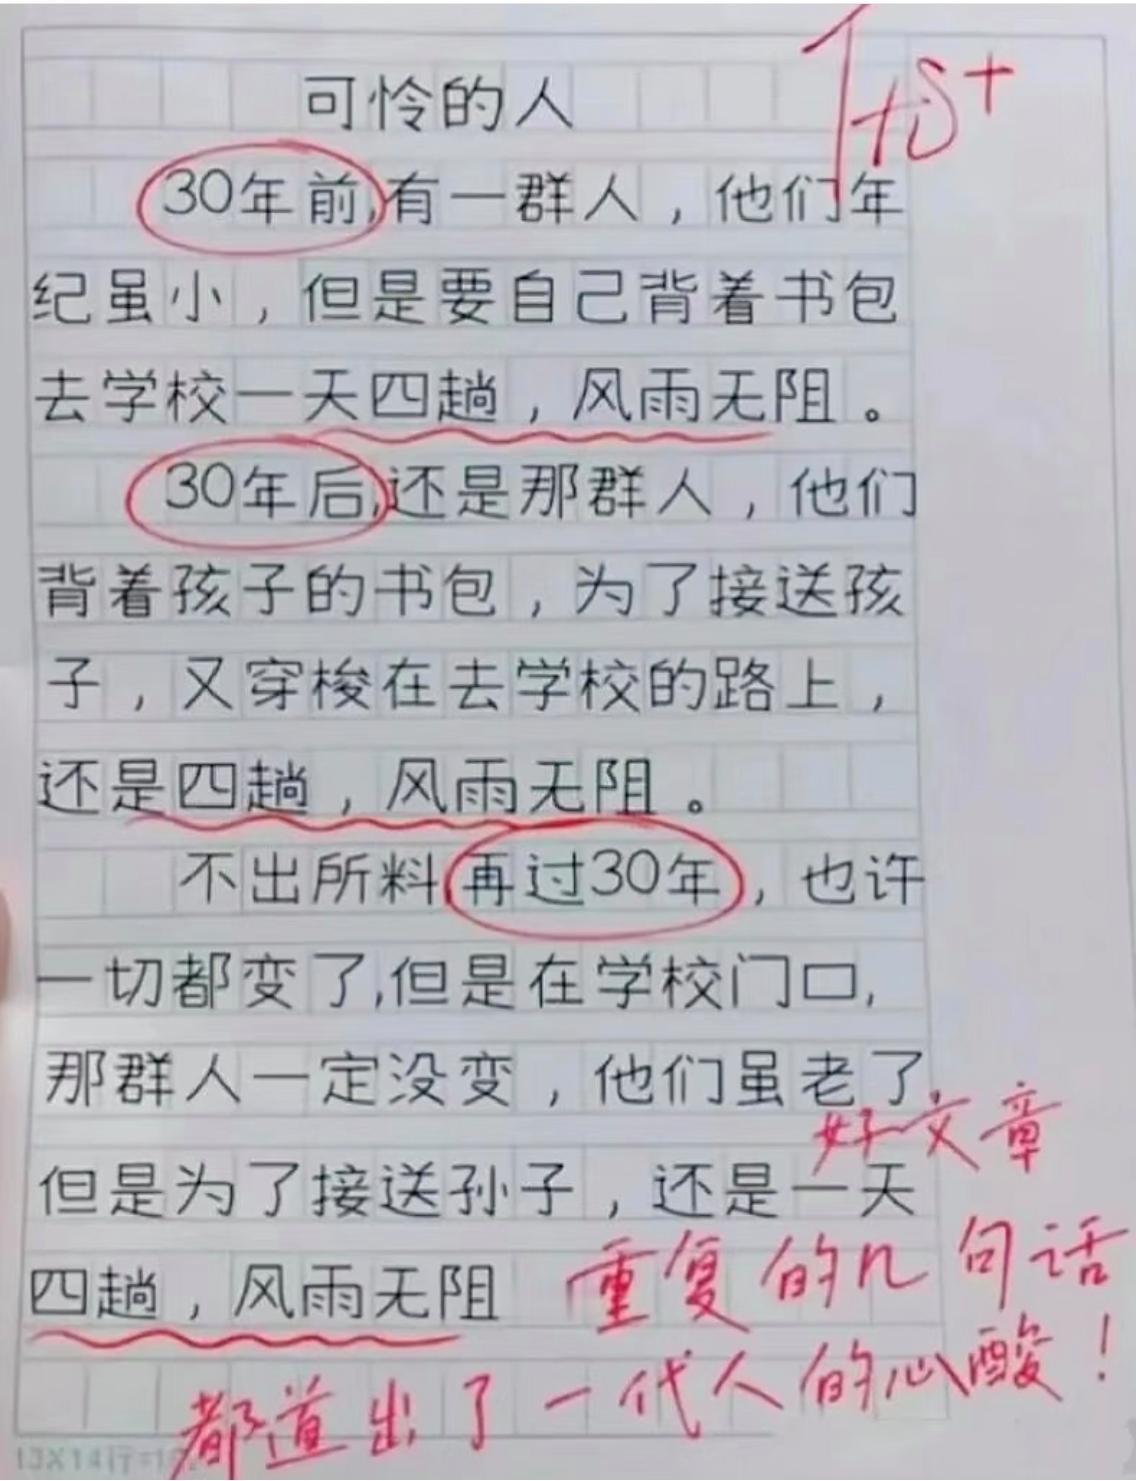 可怜的人
优+
30年前,有一群人，他们年
纪虽小，但是要自己背着书包
去学校一天四趟，风雨无阻。
30年后,还是那群人，他们
背着孩子的书包，为了接送孩
子，又穿梭在去学校的路上，
还是四趟，风雨无阻。
不出所料,再过30年，也许
一切都变了,但是在学校门口,
那群人一定没变，他们虽老了
好文章
但是为了接送孙子，还是一天
四趟，风雨无阻
重复的几句话
都道出了一代人的心酸！
13X14行=1